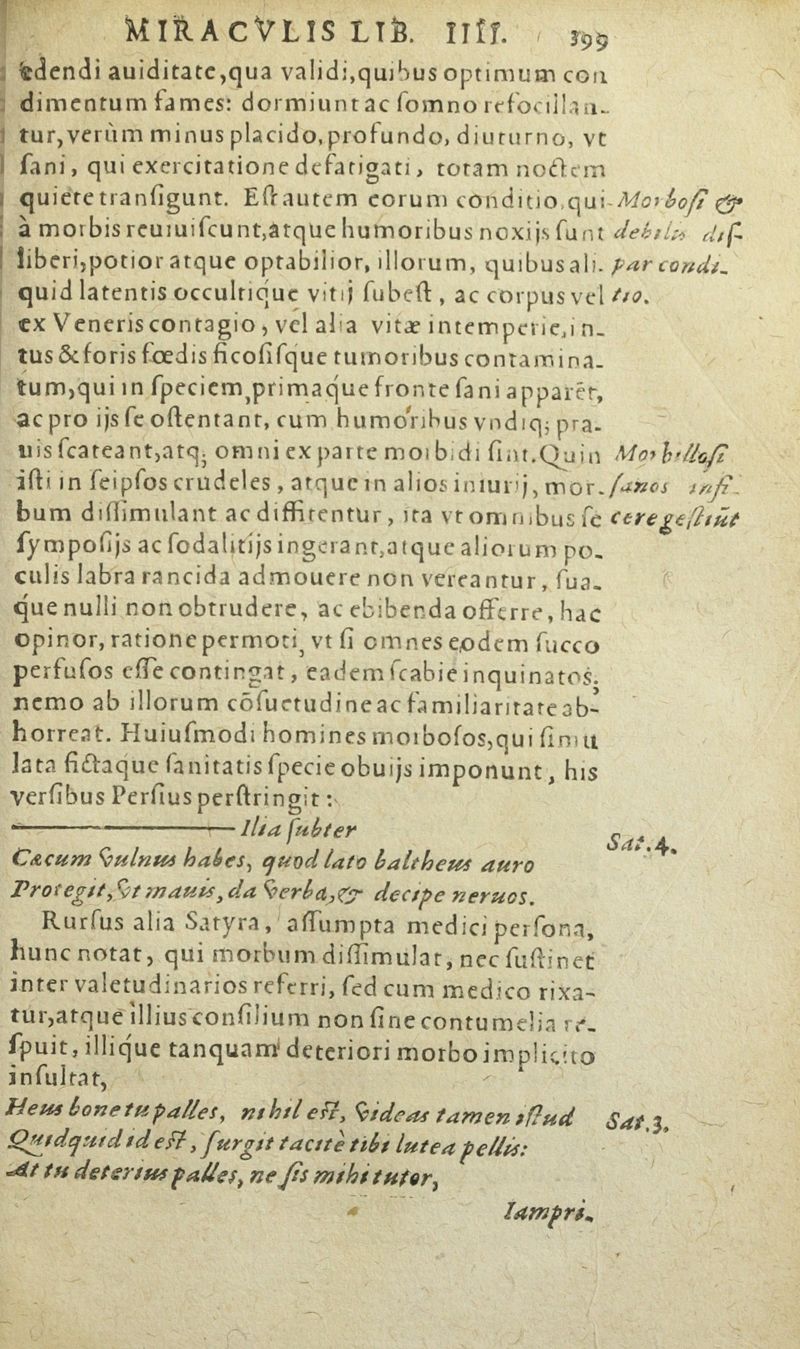 MIRACVLIS LIB. IIII. 399
edendi auiditate,qua validi,quibus optimum con
dimentum fames: dormiunt ac ſomno refocillan-
tur,verùm minus placido,profundo, diuturno, vt
ſani, qui exercitatione defatigati, totam noctem
quiete tranſigunt. Eſt autem eorum conditio,qui Morboſi &
à morbis reuiuiſcunt,atque humoribus noxijs ſunt debiliū diſ-
liberi,potior atque optabilior, illorum, quibus ali- par condi-
quid latentis occultique vitij ſubeſt, ac corpus vel tio.
ex Veneris contagio, vel alia vitæ intemperie,in-
tus & foris fœdis ficoſiſque tumoribus contamina-
tum,qui in ſpeciem,primaque fronte ſani apparēt,
ac pro ijs ſe oſtentant, cum humoribus vndiq; pra-
uis ſcateant,atq; omni ex parte morbidi ſint.Quin Morbilloſi
iſti in ſeipſos crudeles, atque in alios iniurij, mor- ſanos infi-
bum diſſimulant ac diffitentur, ita vt omnibus ſe cere geſtiūt
ſympoſijs ac ſodalitijs ingerant,atque aliorum po-
culis labra rancida admouere non vereantur, ſua-
que nulli non obtrudere, ac ebibenda offerre, hac
opinor, ratione permoti, vt ſi omnes eodem ſucco
perfuſos eſſe contingat, eadem ſcabie inquinatos,
nemo ab illorum cōſuetudine ac familiaritate ab-
horreat. Huiuſmodi homines morboſos,qui ſimu
lata fictaque ſanitatis ſpecie obuijs imponunt, his
verſibus Perſius perſtringit:
——— Ilia ſubter Sat.4.
Cæcum vulnus habes, quod lato baltheus auro
Protegit,vt mauis, da verba,& decipe neruos.
Rurſus alia Satyra, aſſumpta medici perſona,
hunc notat, qui morbum diſſimulat, nec ſuſtinet
inter valetudinarios referri, ſed cum medico rixa-
tur,atque illius conſilium non ſine contumelia re-
ſpuit, illique tanquam deteriori morbo implicito
inſultat,
Heus bone tu palles, nihil eſt, videas tamen iſtud Sat.3.
Quidquid id eſt, ſurgit tacitè tibi lutea pellis:
At tu deterius palles, ne ſis mihi tutor,
Iampri-